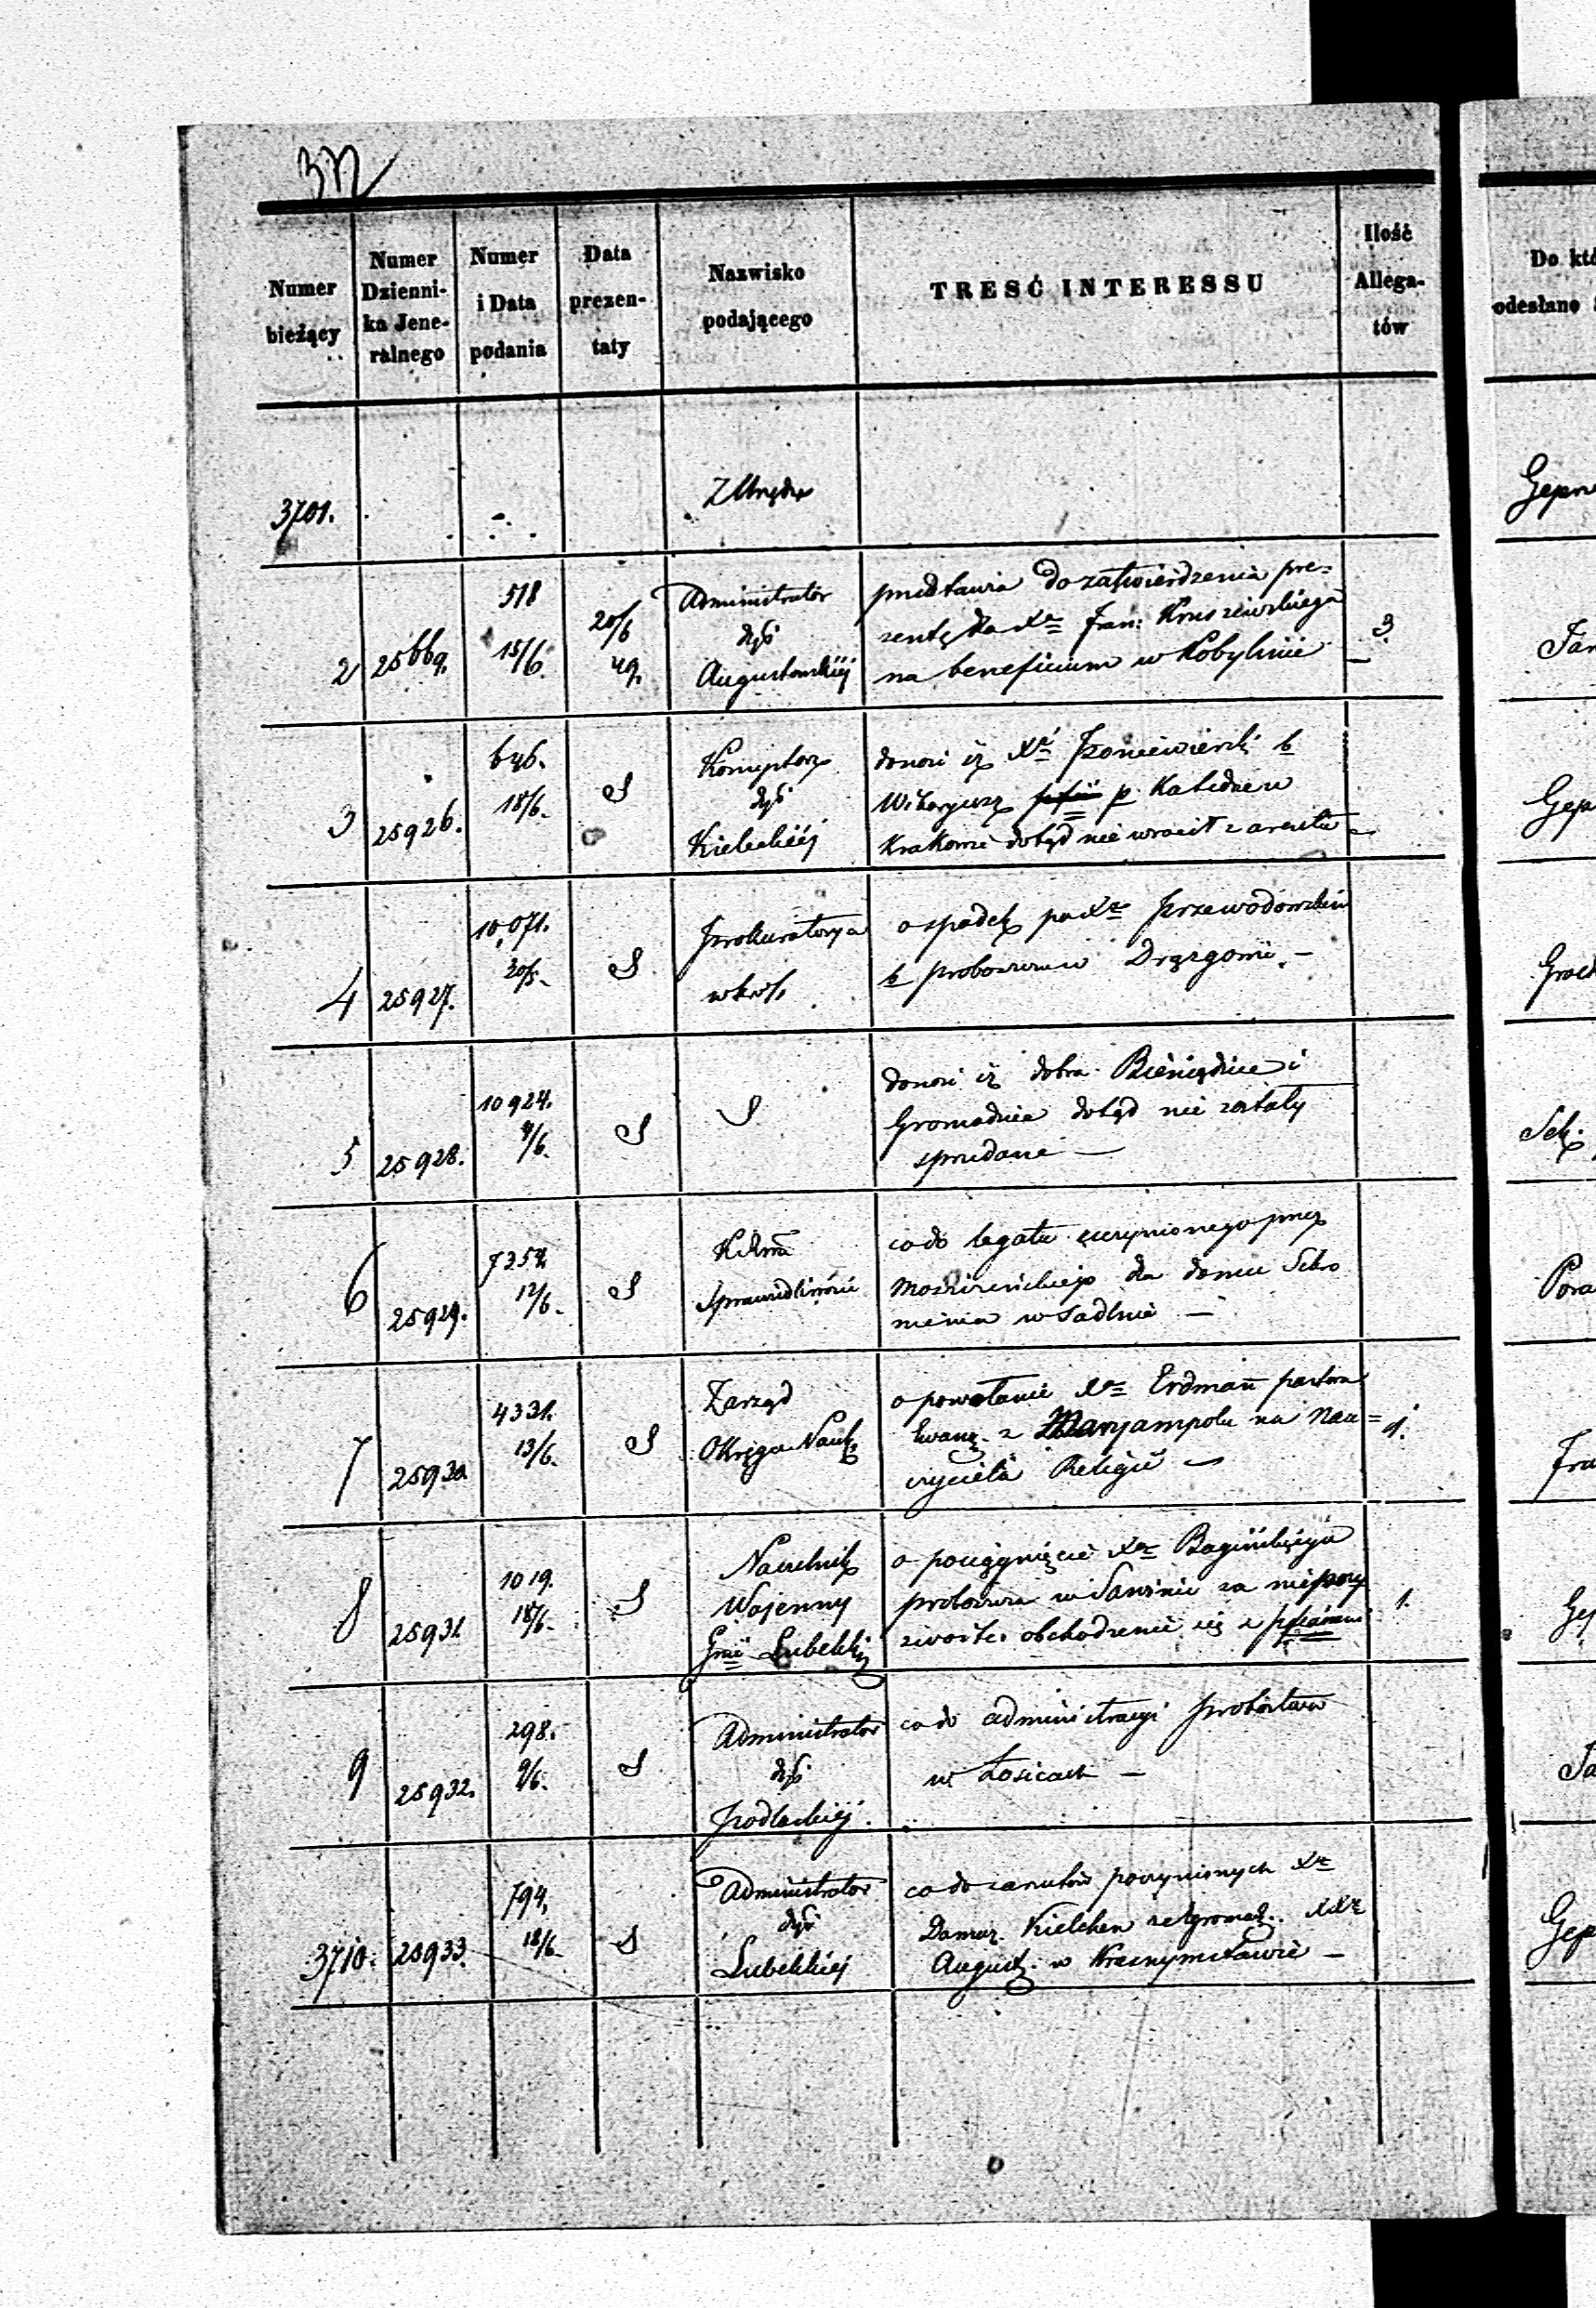 372
Numer
bieżący
Numer
Dzienni-
ka Jene-
ralnego
Numer
i Data
podania
Data
prezen-
taty
Nazwisko
podającego
TREŚĆ INTERESSU
Ilość
Allega-
tów
Do któ
odesłano
3701.
Z Urzędu
2
25669.
518
15/6.
20/6
49.
Administrator
dyć
Augustowskiéj
przedstawia do zatwierdzenia pre-
zentę dla Xa Fran: Kruszewskiego
na beneficium w Kobylinie
3.
3
25926.
646.
18/6.
S
dyć
Kieleckiéj
donosi iż Xdz Poniewierski b
Wikaryusz p. Katedrze w
Krakowie dotąd nie wrócił z aresztu
4
25927.
10,071.
30/5.
S
Prokuratorya
o spadek po Xze Przewodowskim
b proboszczu w Drążgowie. –
5
25928.
10924.
4/6.
S
S
donosi iż dobra Bieniądzice i
Gromadzice dotąd nie zostały
sprzedane —
6
25929.
7354.
12/6.
S
Sprawiedliwości
co do legatu uczynionego przez
Mościcińskiego dla domu Schro
nienia w Sadlnie —
7
25930
4331.
13/6.
S
Zarząd
Okręgu Nauk
o powołanie Xa Erdmañ pastora
Ewang. z Maryampola na nau=
czyciela Religii —
1.
8
25931.
1019.
18/6.
S
Naczelnik
Wojenny
Gnii Lubelskiej
o pociągnięcie Xa Bagińskiego
proboszcza w Sawinie za nieprzy
zwoite obchodzenie się z
1.
9
25932.
298.
9/6.
S
Administrator
dyć
Podlaskiéj.
co do administracyi probostwa
w Łosicach —
3710.
25933.
794.
18/6.
S
Administrator
dyć
Lubelskiej
co do zarzutów poczynionych Xu
Damaz. Kielchen ze Zgromad. XXży
August. w Krasnymstawie —